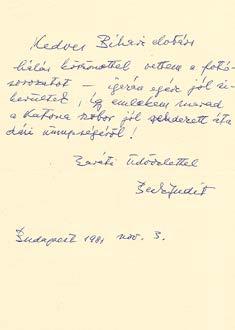 Kedves Bihari elvtárs
hálás köszönettel vettem a fotó-
sorozatot – igazán egész jól si-
kerültek, így emlékem marad
a Katona szobor jól rendezett áta-
dási ünnepségéről!
Baráti Üdvözlettel
Beck Judit
Budapest 1981 nov. 3.